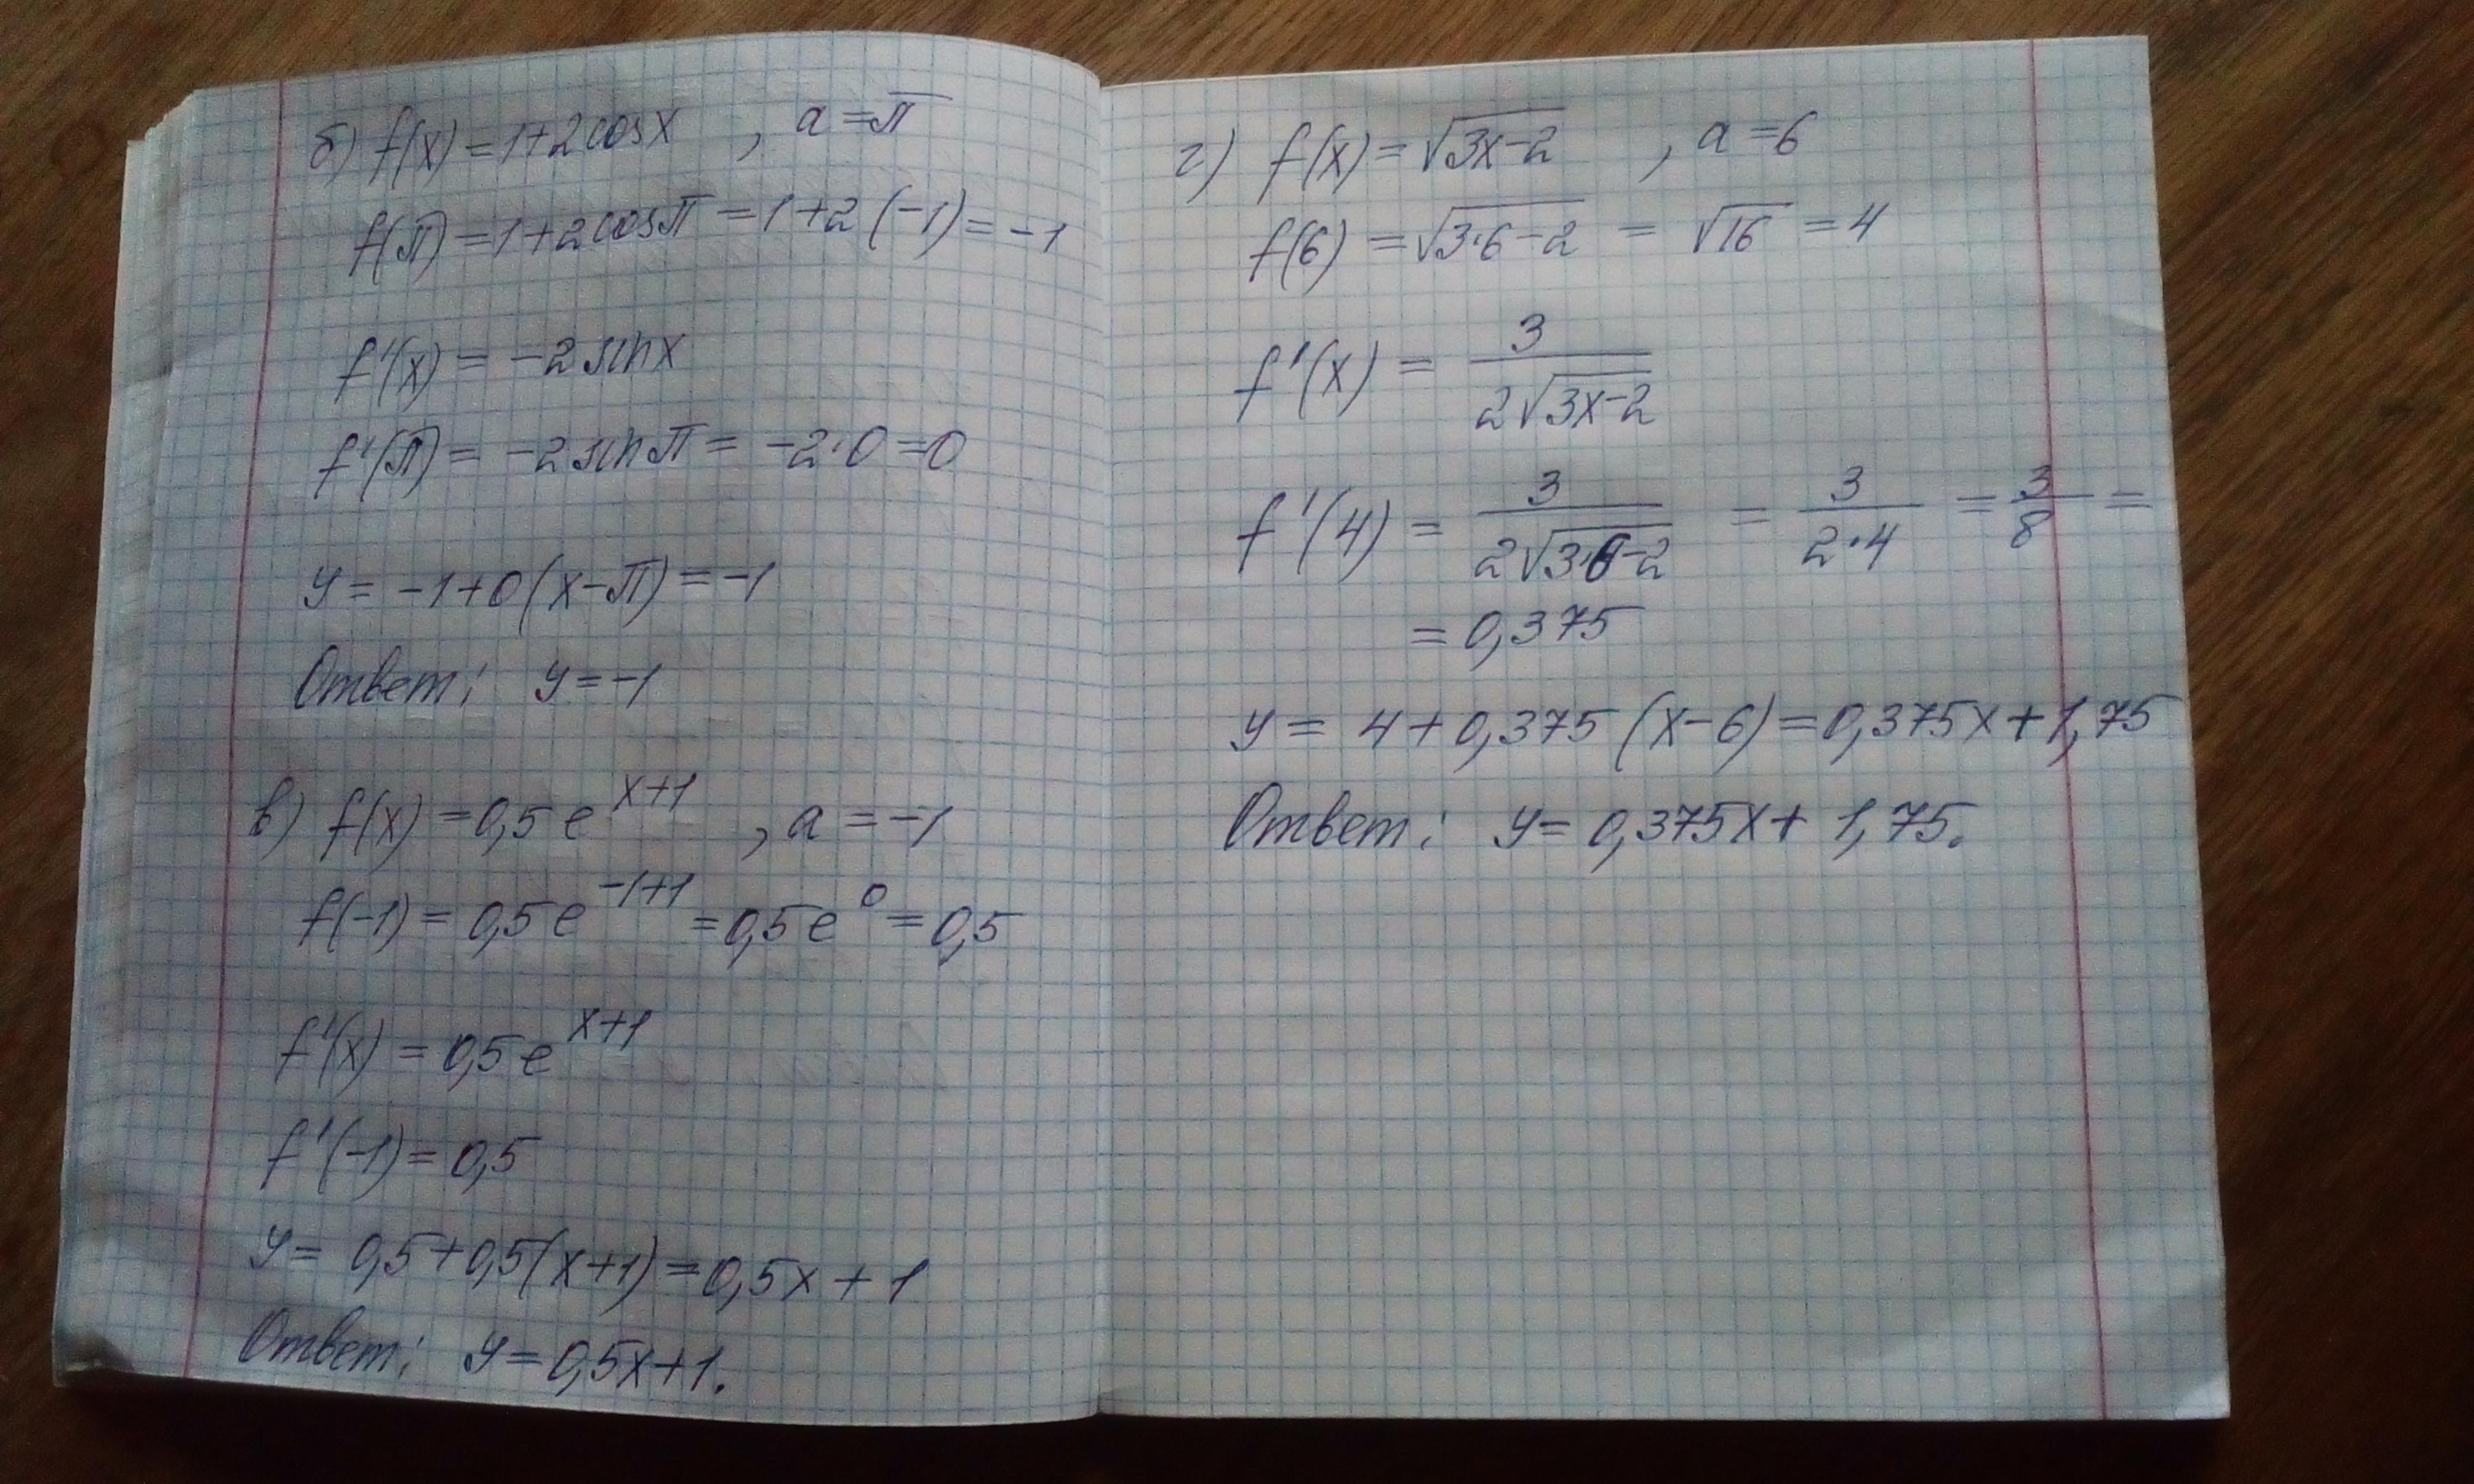 б) f(x) = 1+2cosx , a = π
f(π) = 1+2cosπ = 1+2(-1) = -1
f'(x) = -2sinx
f'(π) = -2sinπ = -2·0 = 0
y = -1+0(x-π) = -1
Ответ: y = -1
в) f(x) = 0,5e^{x+1} , a = -1
f(-1) = 0,5e^{-1+1} = 0,5e^{0} = 0,5
f'(x) = 0,5e^{x+1}
f'(-1) = 0,5
y = 0,5+0,5(x+1) = 0,5x+1
Ответ: y = 0,5x+1.
г) f(x) = √(3x-2) , a = 6
f(6) = √(3·6-2) = √16 = 4
f'(x) = 3/(2√(3x-2))
f'(4) = 3/(2√(3·6-2)) = 3/(2·4) = 3/8 =
= 0,375
y = 4+0,375(x-6) = 0,375x+1,75
Ответ: y = 0,375x+1,75.